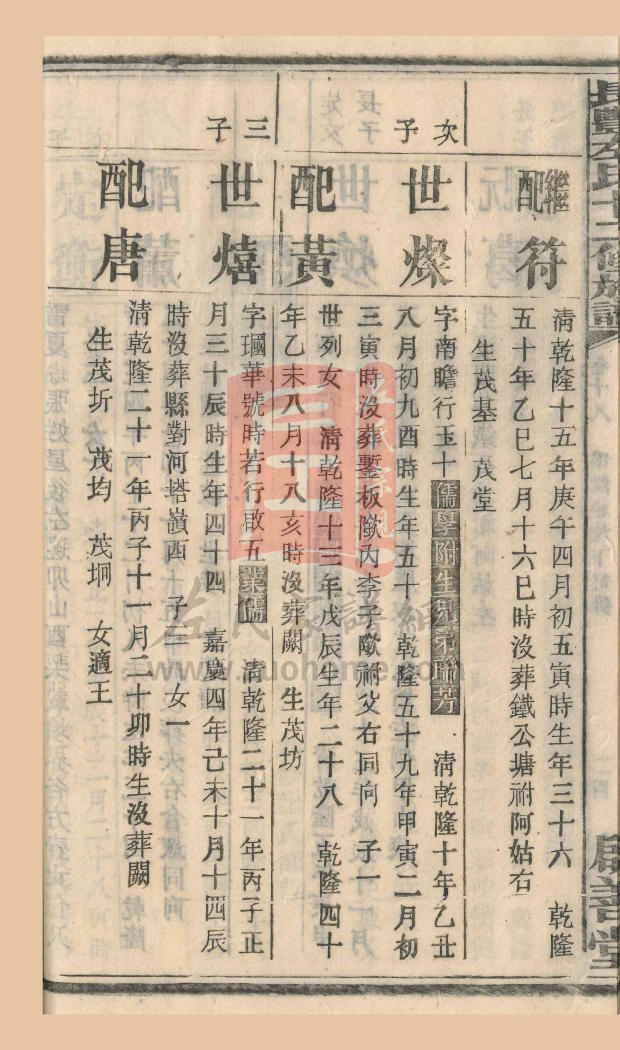 長豐左氏十二修族譜
啟善堂
繼配符
清乾隆十五年庚午四月初五寅時生年三十六 乾隆
五十年乙巳七月十六巳時沒葬鐵公塘祔阿姑右
生茂基 茂堂
次子
世燦
字南瞻行玉十儒學附生兄弟聯芳 清乾隆十年乙丑
八月初九酉時生年五十 乾隆五十九年甲寅二月初
三寅時沒葬鏨板隞內李子隞祔父右同向 子一
配黃
世列女 清乾隆十三年戊辰生年二十八 乾隆四十
年乙未八月十八亥時沒葬闕 生茂坊
三子
世熺
字瑂華號時若行啟五業儒 清乾隆二十一年丙子正
月三十辰時生年四十四 嘉慶四年己未十月十四辰
時沒葬縣對河塔嶺西 子三 女一
配唐
清乾隆二十一年丙子十一月二十卯時生沒葬闕
生茂圻 茂均 茂坰 女適王
左氏家譜網
www.zuohome.com